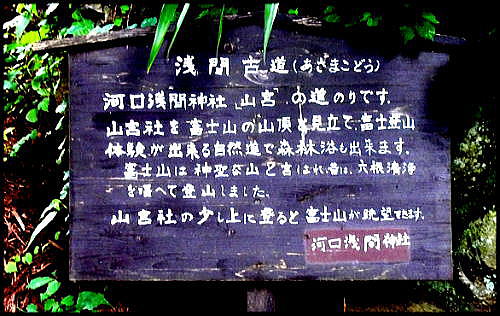 浅間古道(あさまこどう)
河口浅間神社「山宮」の道のりです.
山宮社を富士山の山頂と見立て、富士登山
体験が出来る自然道で森林浴も出来ます.
富士山は神聖な山と言はれ昔は、六根清浄
を唱へて登山しました.
山宮社の少し上に登ると富士山が眺望できます.
河口浅間神社